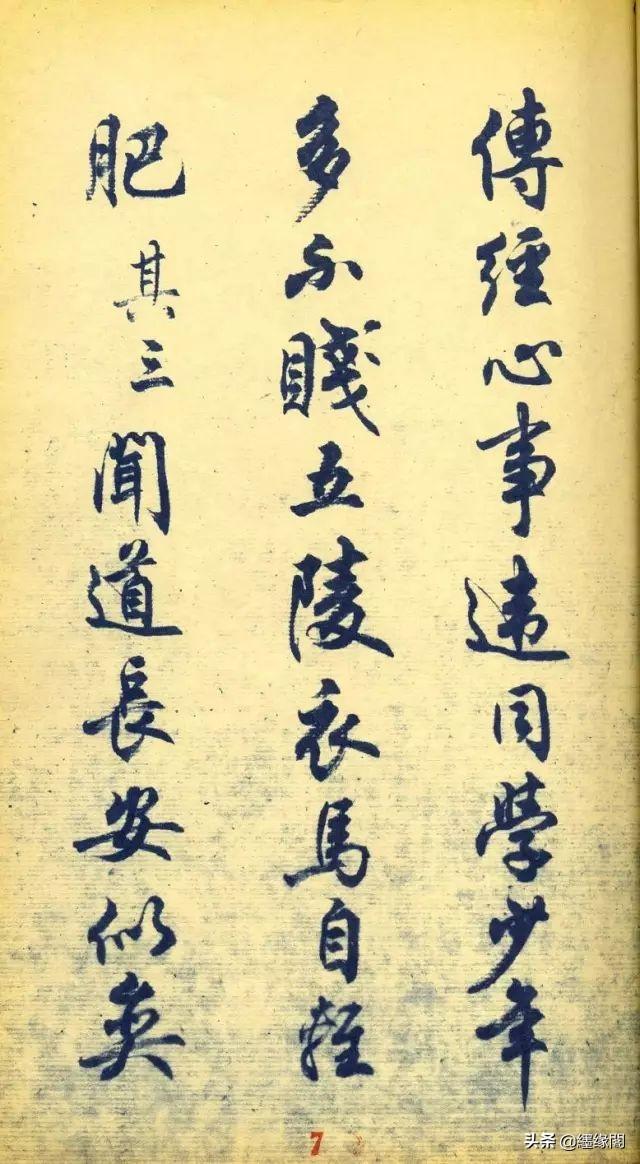 傳經心事違同學少年
多不賤五陵衣馬自輕
肥其三聞道長安似奕
7
头条@纆缘閣